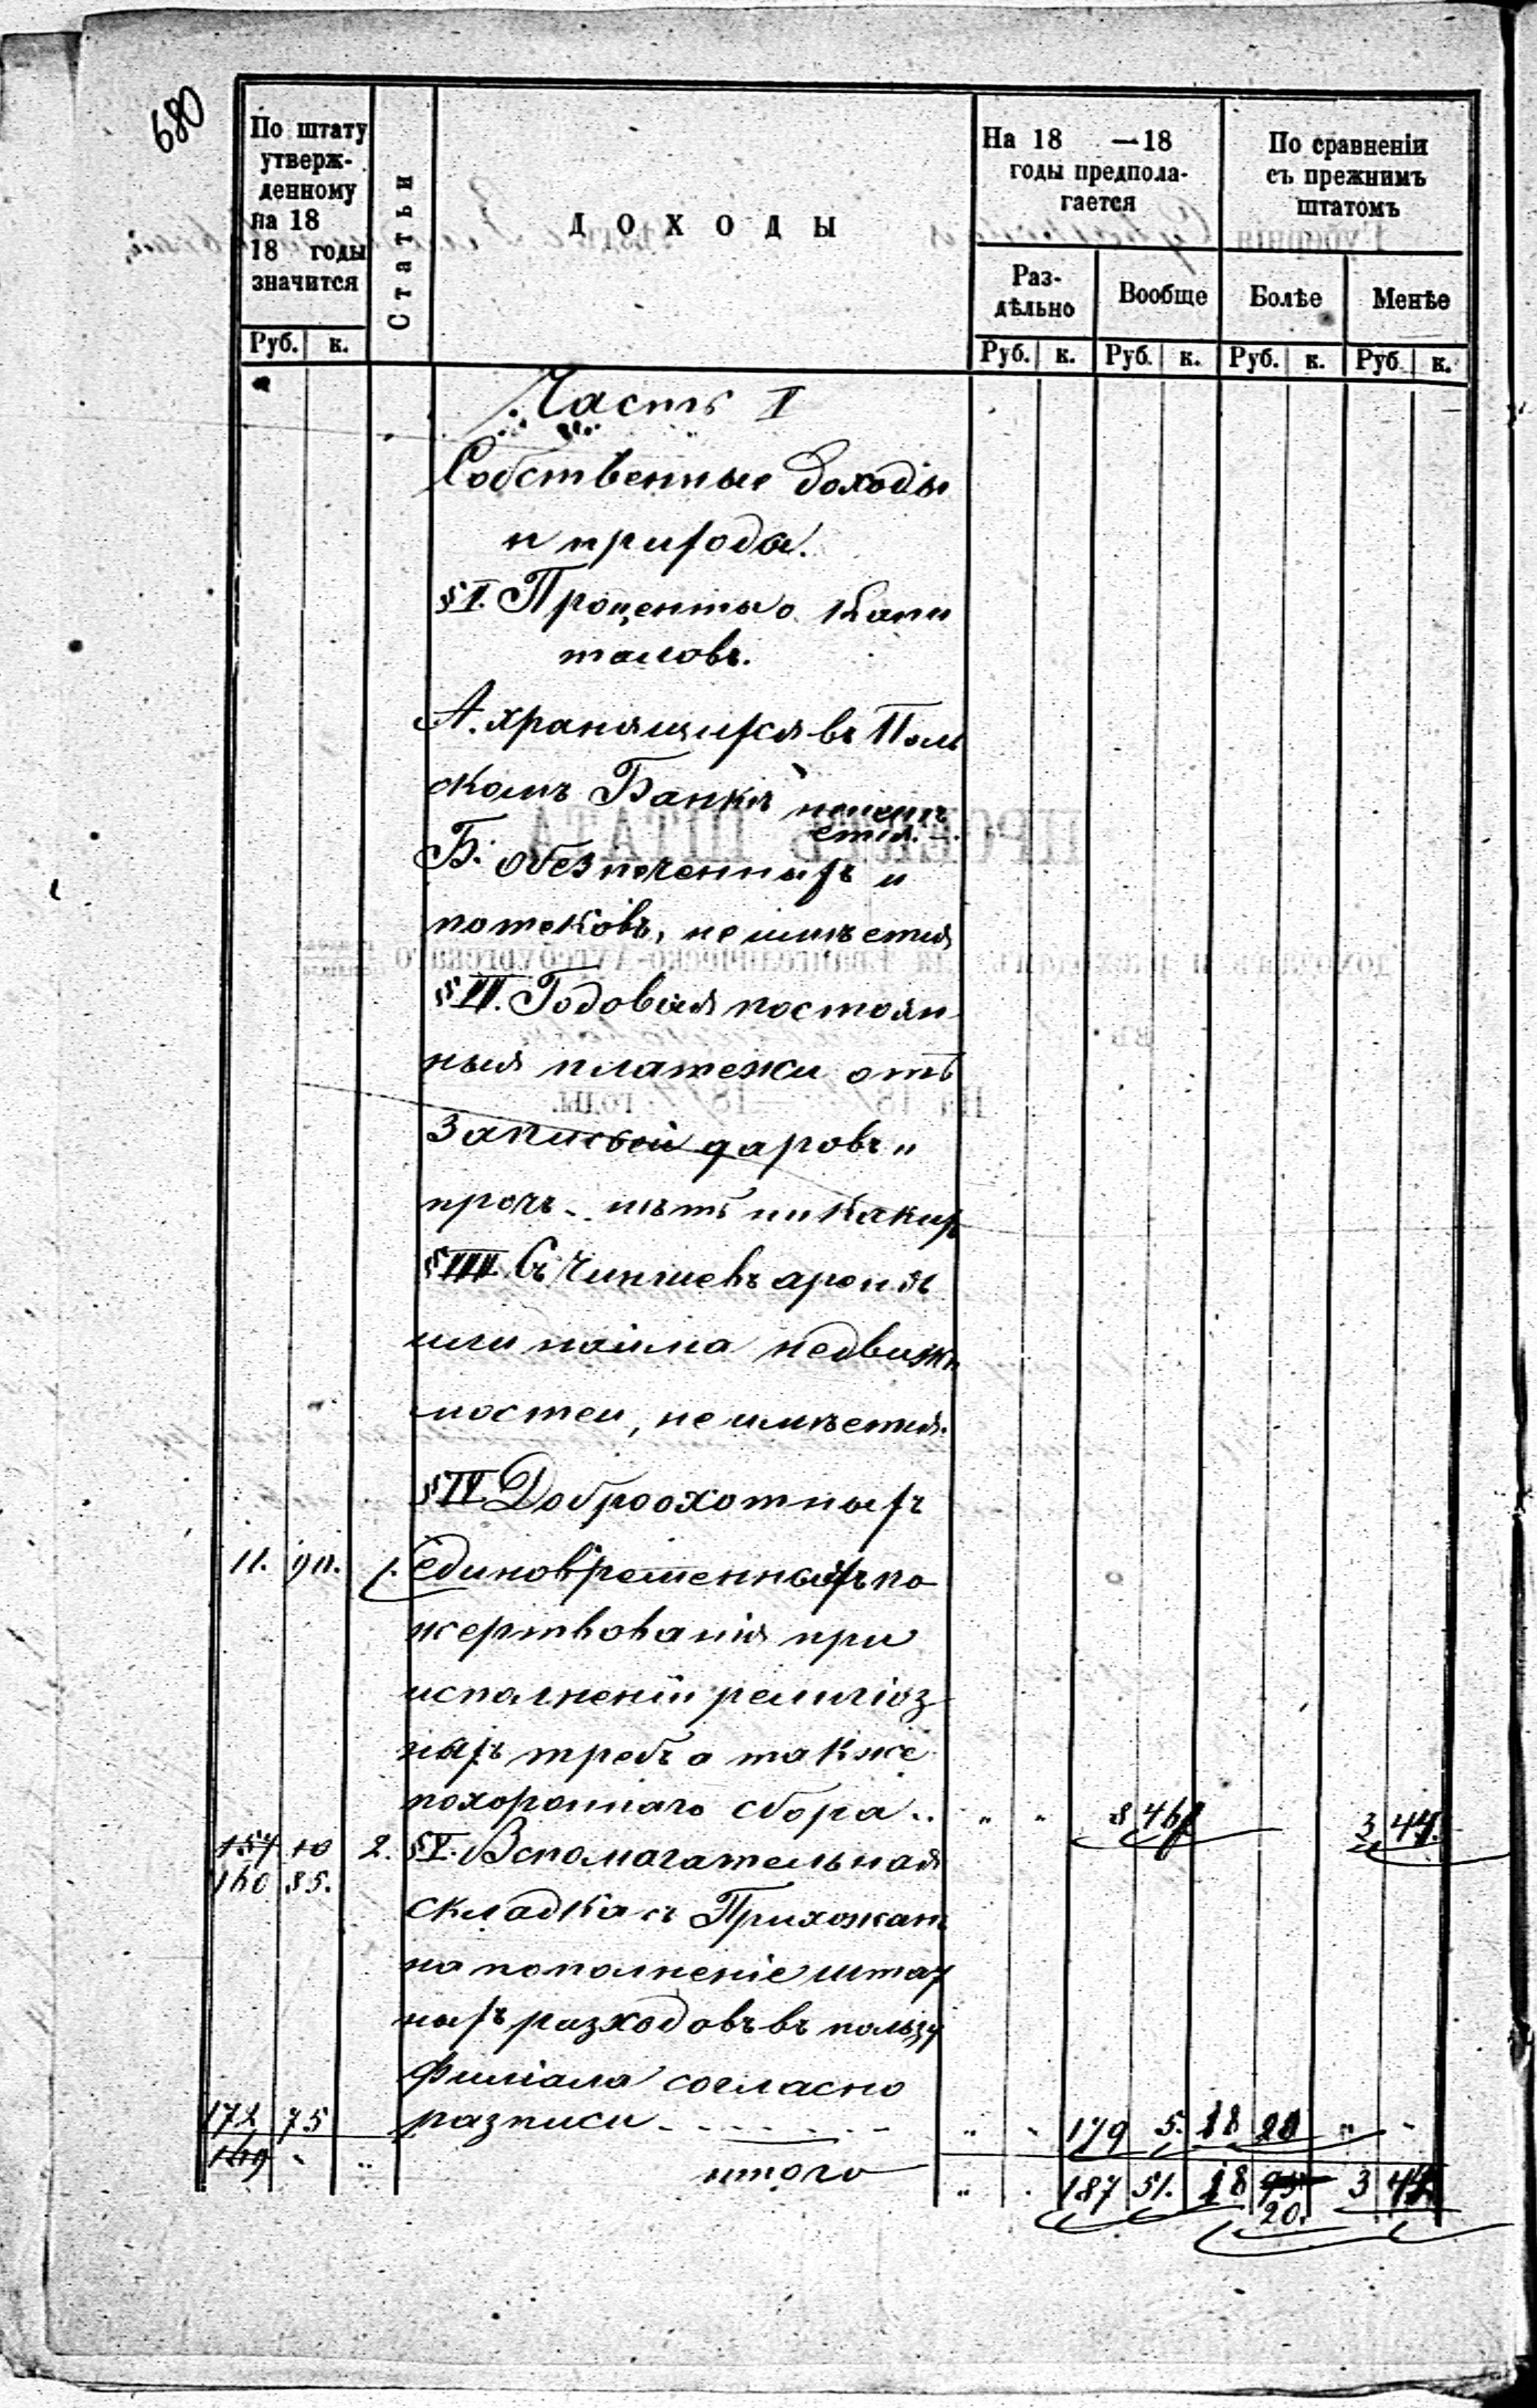 680
По штату
утверж-
денному
на 18
18 годы
значится
Руб. к.
Статьи
ДОХОДЫ
На 18 —18
годы предпола-
гается
Раз-
дѣльно
Вообще
Руб. к. Руб. к.
По сравненіи
съ прежнимъ
штатомъ
Болѣе
Менѣе
Руб. к. Руб к.
Часть I
Собственные доходы
и прихода.
§ I. Проценты о Капи
таловъ.
А. хранящихся въ Поль
скомъ Банкѣ неимѣ
ется.
Б. Обезпеченныхъ и
потековъ, не имѣется
§ II. Годовыя постоян
ныя платежи отъ
Записей даровъ и
прочъ - нѣтъ никакихъ
§ III Съ Чиншевъ аренды
или найма недвижи
мостей, не имѣется.
§ IV Доброохотныхъ
11. 90. 1. единовременныхъ по
жертвованія при
исполненіи религіоз
ныхъ требъ а также
похороннаго сбора .. „ „ 8 46 3 44.
157 10 2. § V. Вспомагательная
160 85.
складка съ Прихожанъ
на пополненіе штат
ныхъ разходовъ въ пользу
Филіала согласно
172 75 разписи - - - - - „ - 179 5. 18 20 „ -
169 - „ итого „ . 187 51. 18 95 3 44
20.